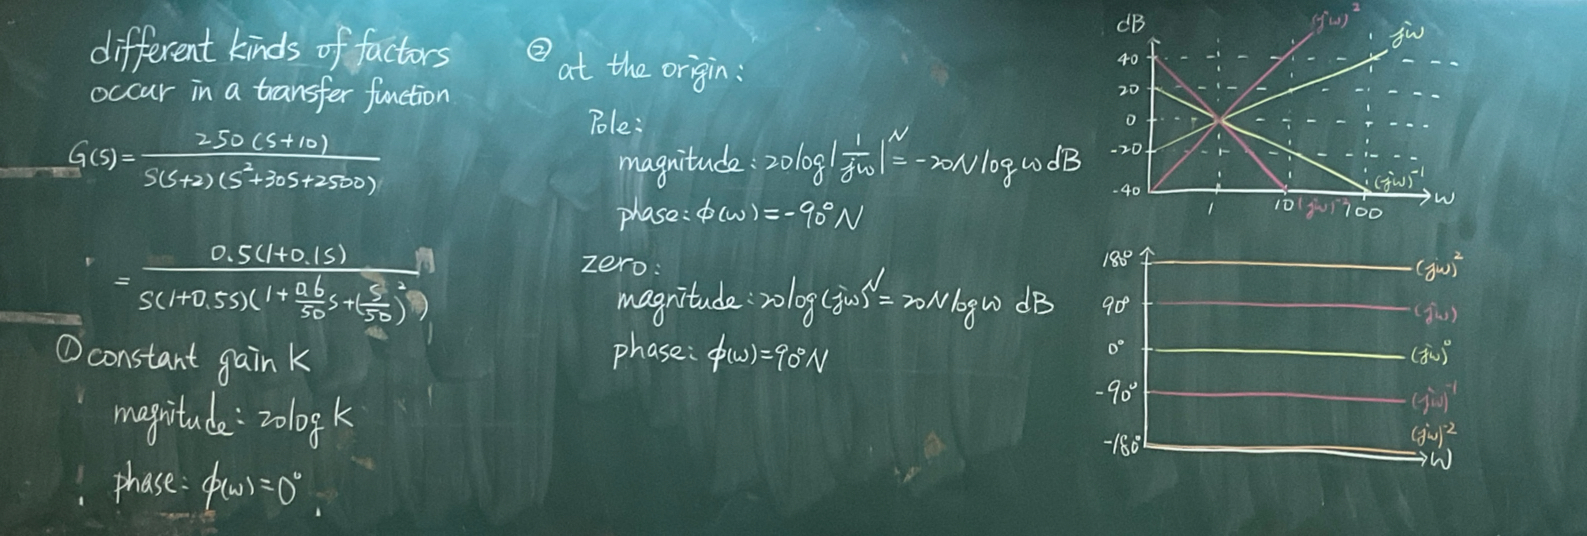 different kinds of factors
occur in a transfer function
G(s)=250(s+10)/s(s+2)(s²+30s+2500)
=0.5(1+0.1s)/s(1+0.5s)(1+0.6/50 s+(s/50)²)
① constant gain K
magnitude: 20log K
phase: ϕ(ω)=0°
② at the origin:
Pole:
magnitude: 20log|1/jω|ᴺ=-20Nlogω dB
phase: ϕ(ω)=-90°N
zero:
magnitude: 20log(jω)ᴺ=20Nlogω dB
phase: ϕ(ω)=90°N
dB
(jω)²
jω
40
20
0
-20
-40
(jω)⁻¹
ω
1
10
(jω)⁻²
100
180°
(jω)²
90°
(jω)
0°
(jω)⁰
-90°
(jω)⁻¹
-180°
(jω)⁻²
ω